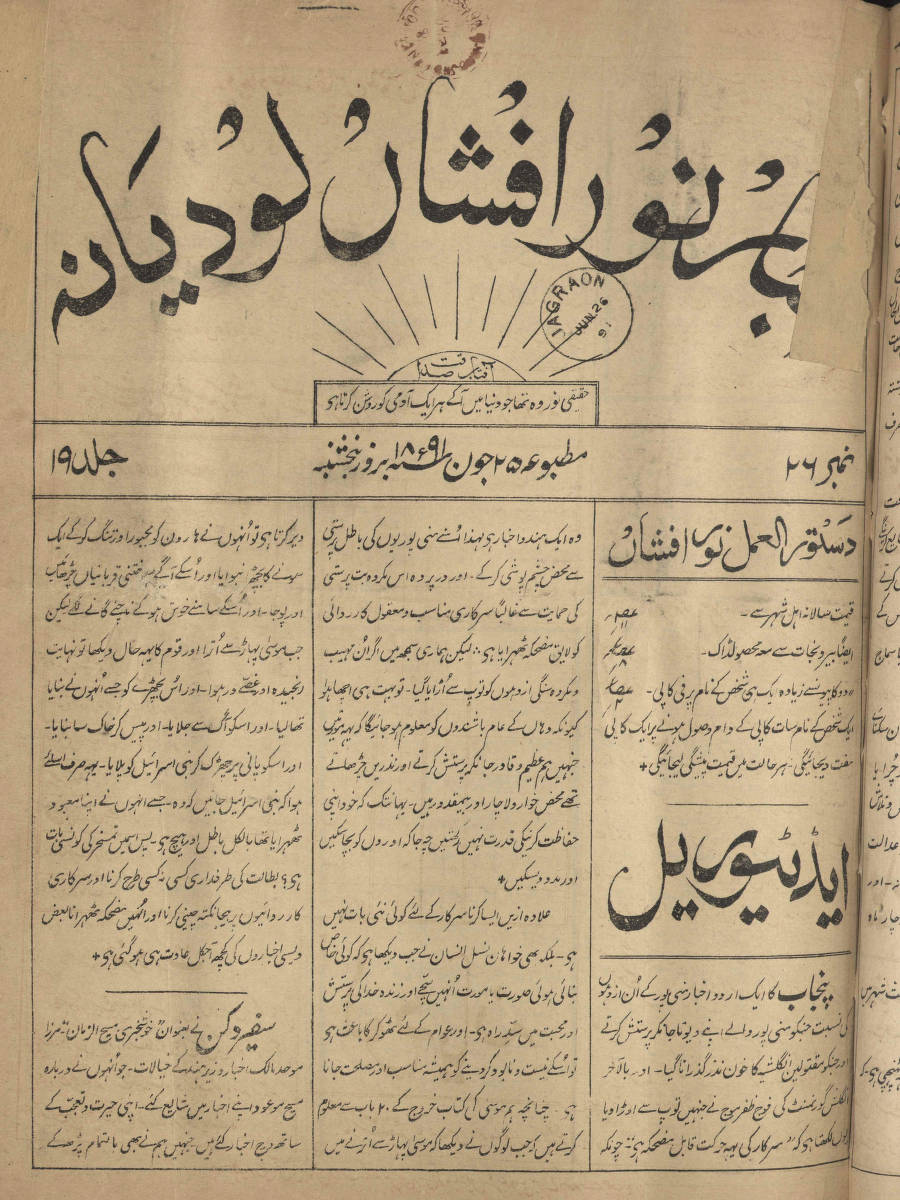 اخبار نور افشاں لودیانہ
JAGRAON
JUN. 26
91
آفتاب صداقت
حقیقی نور وہ تھا جو دنیا میں آکے ہر ایک آدمی کو روشن کرتا ہی
نمبر ۲۶
مطبوعہ ۲۵ جون ۱۸۹۱ء بروز پنجشنبہ
جلد ۱۹
دستور العمل نور افشاں
قیمت سالانہ اہل شہر سے -
ایضاً بیرونجات سے معہ محصولڈاک -
دو کاپیونسے زیادہ ایک ہی شخص کے نام پر فی کاپی -
ایک شخص کے نام سات کاپی کے دام وصول ہونے پر ایک کاپی
مفت دیجائیگی - ہر حالت میں قیمت پیشگی لیجائیگی +
ایڈیٹوریل
پنجاب کا ایک اردو اخبار منی پور کے اُن اژدہوں
کی نسبت جنکو منی پور والے اپنے دیوتا جانکر پرستش کرتے
اور جنکو مقتولین انگلشیہ کا خون نذر گذرانا گیا - اور بالآخر
انگلش گورنمنٹ کی فوج ظفر موج نے جنہیں توپ سے اوڑا دیا
یوں لکھتا ہی کہ "سرکار کی یہہ حرکت قابل مضحکہ ہی" چونکہ
وہ ایک ہندو اخبار ہی لہذا اُسنے منی پوریوں کی باطل پرستی
سے محض چشم پوشی کرکے - اور درپردہ اس مکروہ بت پرستی
کی حمایت سے غالباً سرکاری مناسب و معقول کارروائی
کو لایق مضحکہ ٹھہرایا ہی : لیکن ہماری سمجھ میں اگر ان مہیب
و مکروہ سنگی اژدہوں کو توپ سے اُڑایا گیا - تو بہت ہی اچھا ہوا
کیونکہ وہاں کے عام باشندوں کو معلوم ہو جائیگا کہ یہہ مورتیں
جنہیں ہم عظیم و قادر جانکر پرستش کرتے اور نذریں چڑھاتے
تھے محض خوار و لاچار اور بیمقدور ہیں - یہانتک کہ خود اپنی
حفاظت کرنیکی قدرت نہیں رکھتیں چہ جا کہ اوروں کو بچا سکیں
اور مدد دیسکیں +
علاوہ ازیں ایسا کرنا سرکار کے لئے کوئی نئی بات نہیں
ہی - بلکہ بھی خواہان نسل انسان نے جب دیکھا ہی کہ کوئی خاص
بنائی ہوئی صورت یا مورت اُنہیں سچے اور زندہ خدا کی پرستش
اور محبت میں سدّ راہ ہی - اور عوام کے لئے ٹھوکر کا باعث ہو
تو اُسکے نیست و نابود کر دینے کو ہمیشہ مناسب اور مصلحت جانا
ہی - چنانچہ ہم موسیٰ کی کتاب خروج کے ۲۰ باب سے معلوم
کرتے ہیں کہ جب لوگوں نے دیکھا کہ موسیٰ پہاڑ سے اُترنے میں
دیر کرتا ہی تو اُنہوں نے ہارون کو مجبور اور تنگ کرکے ایک
سونے کا بچھڑا بنوایا اور اُسکے آگے سوختنی قربانیاں چڑھائیں
اور پوجا - اور اُسکے سامنے خوش ہوکے ناچنے گانے لگے لیکن
جب موسیٰ پہاڑ سے اُترا اور قوم کا یہہ حال دیکھا تو نہایت
رنجیدہ اور غصے ور ہوا - اور اُس بچھڑے کو جسے اُنہوں نے بنایا
تھا لیا - اور اسکو آگ سے جلایا - اور پیس کر خاک سا بنایا -
اور اسکو پانی پر چھڑک کر بنی اسرائیل کو پلایا - یہہ صرف اسلئے
ہوا کہ بنی اسرائیل جانیں کہ وہ - جسے انہوں نے اپنا معبود
ٹھہرایا تھا بالکل باطل اور ہیچ ہی - پس اسمیں تمسخر کی کونسی بات
ہی؟ بطالت کی طرفداری کسی نہ کسی طرح کرنا اور سرکاری
کارروائیوں پر بیجا نکتہ چینی کرنا اور اُنہیں مضحکہ ٹھہرانا بعض
دیسی اخباروں کی کچھ آجکل عادت ہی ہو گئی ہی +
سفیر دکن نے بعنوان "خوشخبری مسیح الزمان" مرزا
موحد مالک اخبار وزیر ہند کے خیالات - جو اُنہوں نے دربارہ
مسیح موعود اپنے اخبار میں شایع کئے - اپنی حیرت و تعجب کے
ساتھ درج اخبار کئے ہیں - جنہیں ہم نے بھی بالتمام پڑھ کے